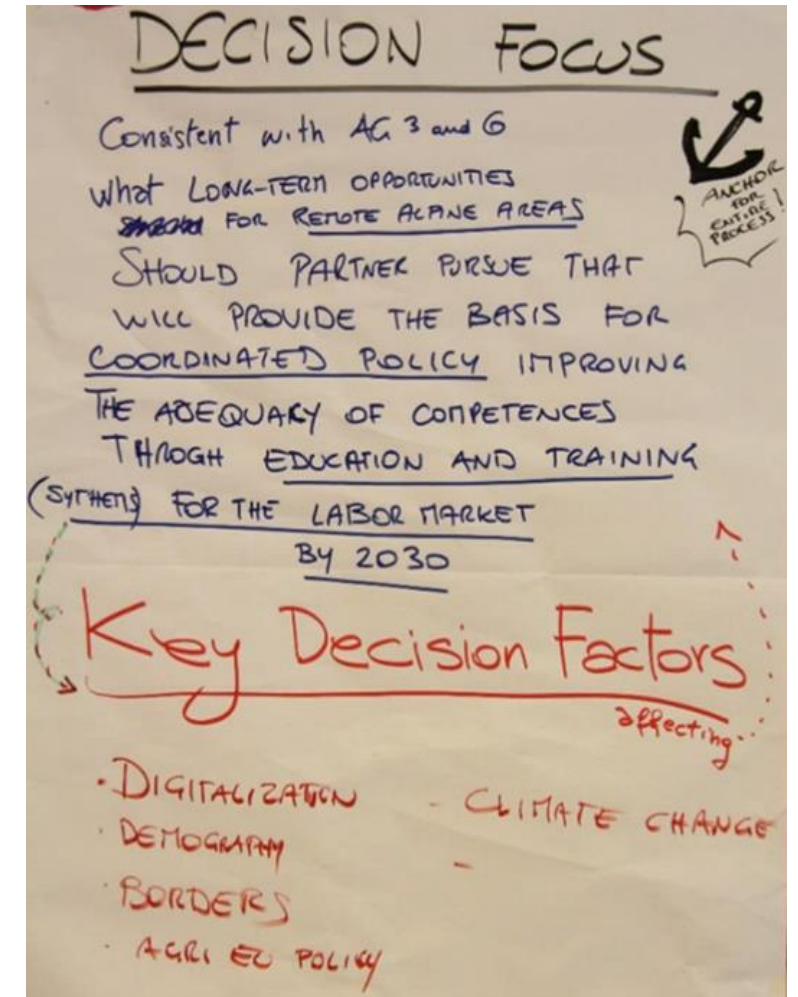 DECISION FOCUS
Consistent with AG 3 and 6
What LONG-TERM OPPORTUNITIES
FOR REMOTE ALPINE AREAS
SHOULD PARTNER PURSUE THAT
WILL PROVIDE THE BASIS FOR
COORDINATED POLICY IMPROVING
THE ADEQUAKY OF COMPETENCES
THROGH EDUCATION AND TRAINING
FOR THE LABOR MARKET
BY 2030
ANCHOR
FOR
ENTIRE
PROCESS!
Key Decision Factors
affecting
· DIGITALIZATION
· DEMOGRAPHY
· BORDERS
· AGRI EU POLICY
- CLIMATE CHANGE
-